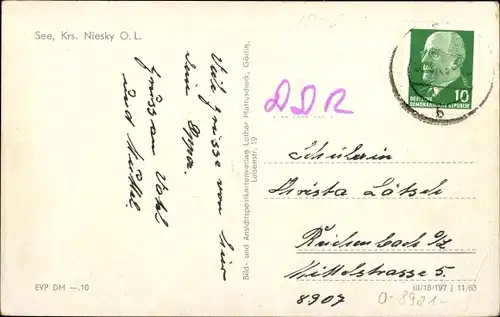 See, Krs. Niesky O. L.
Viele Grüsse von hier
Dein Oppa.
Gruss an Vatel
und Muttel.
EVP DM —.10
Bild- und Ansichtspostkartenverlag Lothar Mattuscheck, Görlitz,
Luisenstr. 19
DDR
10
DEUTSCHE
DEMOKRATISCHE REPUBLIK
Schülerin
Christa Lötsch
Reichenbach O/L
Mittelstrasse 5
8907
III/18/197 j 11/63